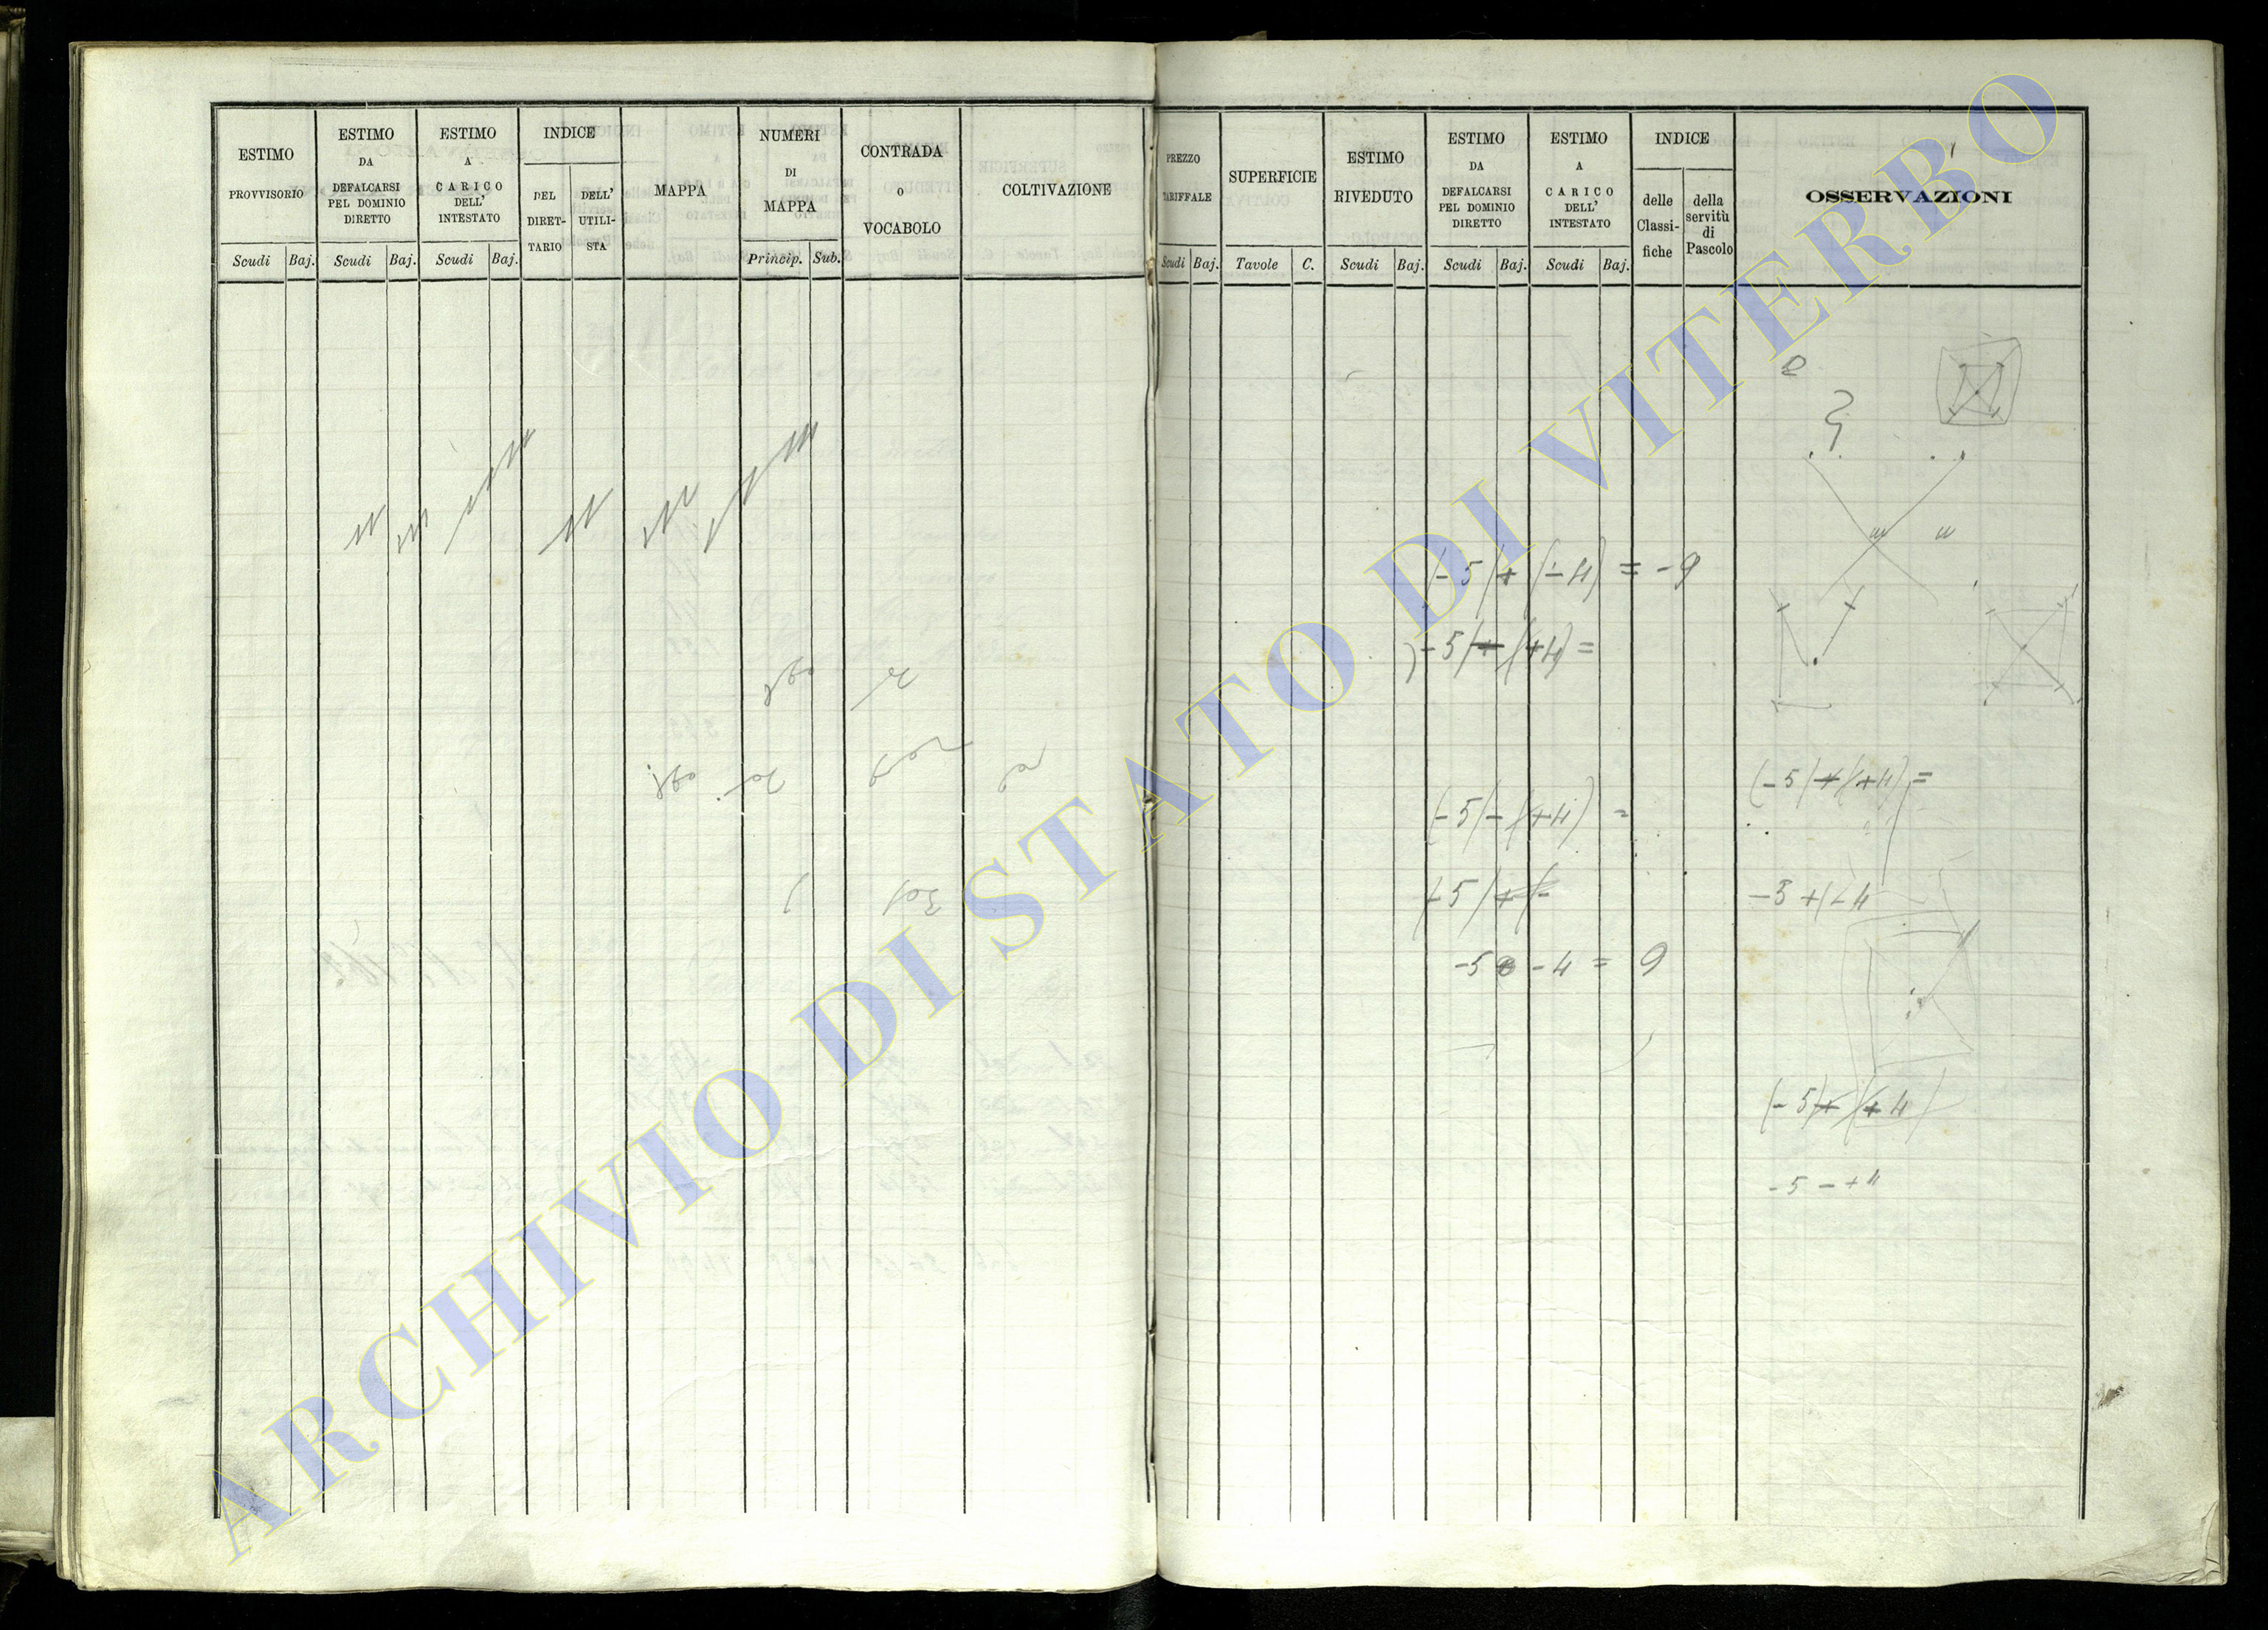 ESTIMO
PROVVISORIO
Scudi Baj.
ESTIMO
DA
DEFALCARSI
PEL DOMINIO
DIRETTO
Scudi Baj.
ESTIMO
A
CARICO
DELL'
INTESTATO
Scudi Baj.
INDICE
DEL
DIRET-
TARIO
DELL'
UTILI-
STA
MAPPA
NUMERI
DI
MAPPA
Princip. Sub.
CONTRADA
O
VOCABOLO
COLTIVAZIONE
PREZZO
TARIFFALE
Scudi Baj.
SUPERFICIE
Tavole C.
ESTIMO
RIVEDUTO
Scudi Baj.
ESTIMO
DA
DEFALCARSI
PEL DOMINIO
DIRETTO
Scudi Baj.
ESTIMO
A
CARICO
DELL'
INTESTATO
Scudi Baj.
INDICE
delle
Classi-
fiche
della
servitù
di
Pascolo
OSSERVAZIONI
(-5)+(-4) = -9
)-5)+(+4) =
(-5)-(+4) =
(-5)+(-
-5 -4 = 9
(-5)+(+4) =
(-5)+(+4)
-5 - +4
ARCHIVIO DI STATO DI VITERBO